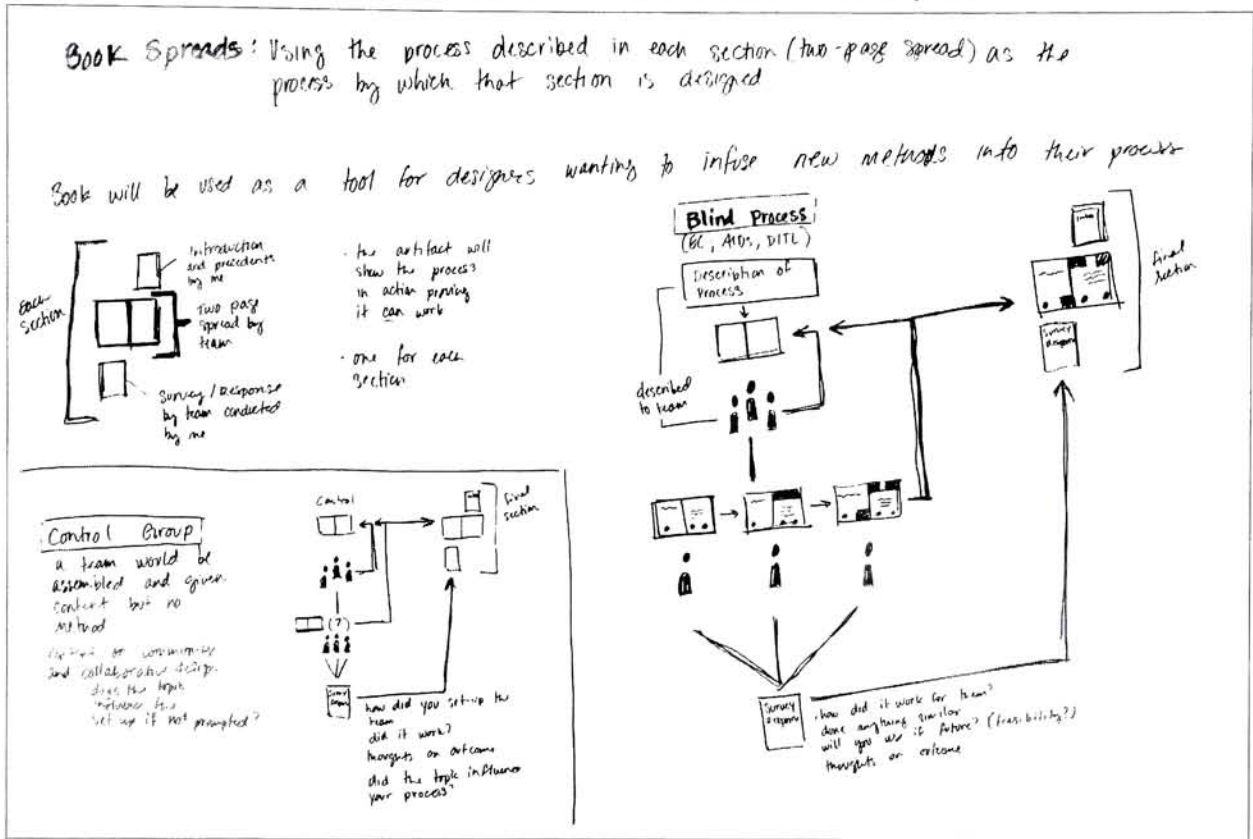 Book Spreads: Using the process described in each section (two-page spread) as the
process by which that section is designed
Book will be used as a tool for designers wanting to infuse new methods into their process
Each
section
Introduction
and precedents
by me
Two page
spread by
team
Survey/Response
by team conducted
by me
· the artifact will
show the process
in action proving
it can work
· one for each
section
Blind Process
(EC, AIDs, DITL)
Description of
Process
described
to team
Intro
Survey
Response
final
section
Survey
Response
how did it work for team?
done anything similar
will you use it future? (feasibility?)
thoughts on outcome
Control Group
a team would be
assembled and given
content but no
method
content on
and collaborative design.
does the topic
influence the
set up if not prompted?
Control
(?)
final
section
how did you set-up the
team
did it work?
thoughts on outcome
did the topic influence
your process?